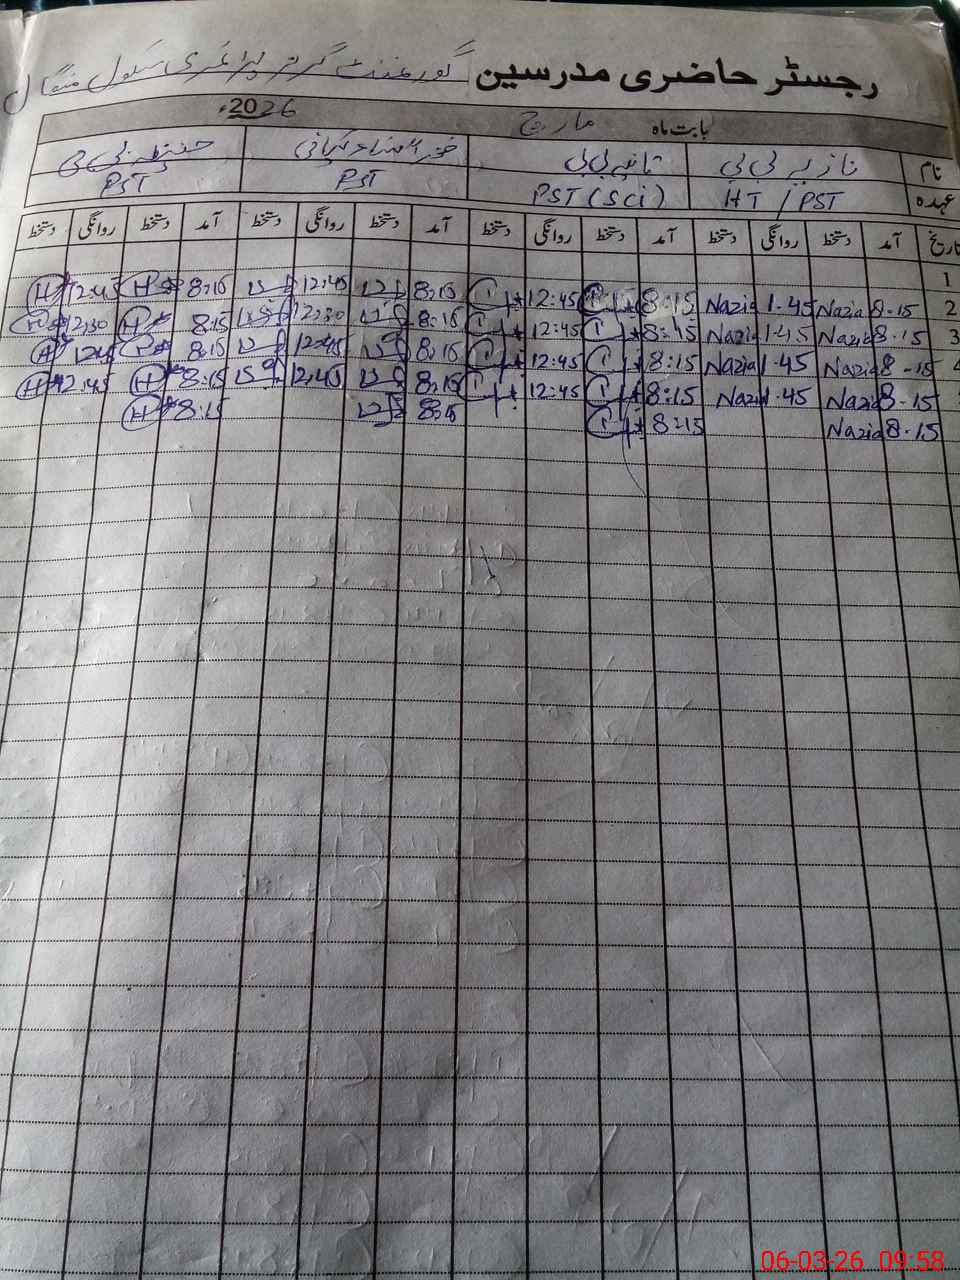 رجسٹر حاضری مدرسین گورنمنٹ گرلز پرائمری سکول منگال
بابت ماہ مارچ 2026ء
نام نازیہ بی بی تانیہ بی بی
عہدہ HT / PST PST (Sci) PST PST
تاریخ آمد دستخط روانگی دستخط آمد دستخط روانگی دستخط آمد دستخط روانگی دستخط آمد دستخط روانگی دستخط
1
2 8-15 Nazia 1-45 Nazia 8:15 12:45 8:15 12:45 8:15 12:45
3 8-15 Nazia 1-45 Nazia 8:15 12:45 8:15 12:30 8:15 12:30
4 8-15 Nazia 1-45 Nazia 8:15 12:45 8:15 12:45 8:15 12:45
8-15 Nazia 1-45 Nazia 8:15 12:45 8:15 12:45 8:15 12:45
8-15 Nazia 8:15 8:15 8:15
06-03-26 09:58